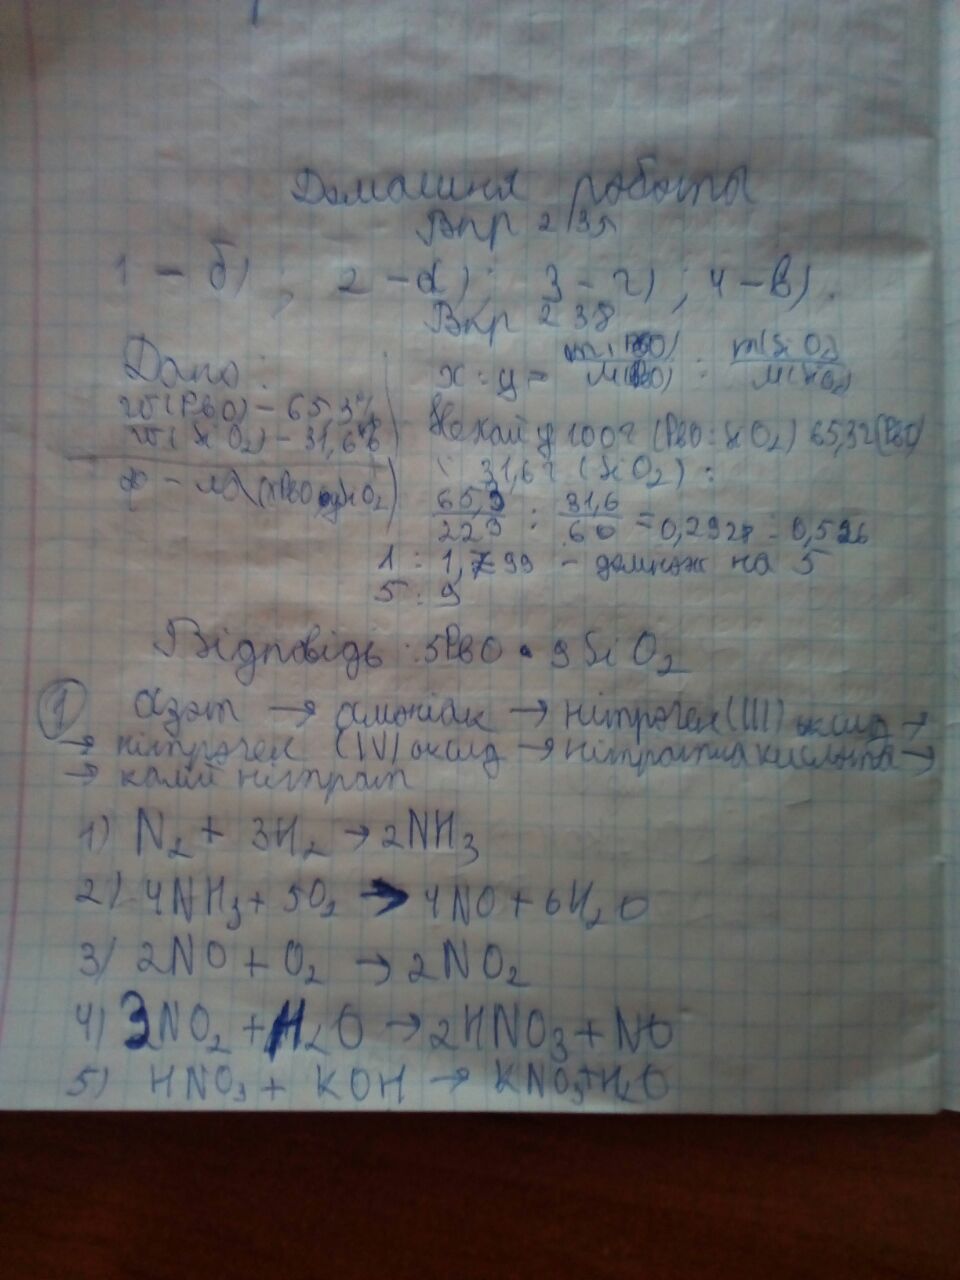 Домашня робота
Впр 235
1 – б) ; 2 – а) ; 3 – г) ; 4 – в) .
Впр 238
Дано :
w(PbO) – 65,3%
w(SiO2) – 31,6%
ф – ла(xPbO·ySiO2)
x : y = m(PbO)/M(PbO) : m(SiO2)/M(SiO2)
Нехай у 100 г (PbO : SiO2) 65,3 г (PbO)
і 31,6 г (SiO2) :
65,3/223 : 31,6/60 = 0,2928 : 0,526
1 : 1,799 – домнож на 5
5 : 9
Відповідь : 5PbO · 9SiO2
1 Азот → амоніак → нітроген (III) оксид →
→ нітроген (IV) оксид → нітратна кислота →
→ калій нітрат
1) N2 + 3H2 → 2NH3
2) 4NH3 + 5O2 → 4NO + 6H2O
3) 2NO + O2 → 2NO2
4) 3NO2 + H2O → 2HNO3 + NO
5) HNO3 + KOH → KNO3 + H2O